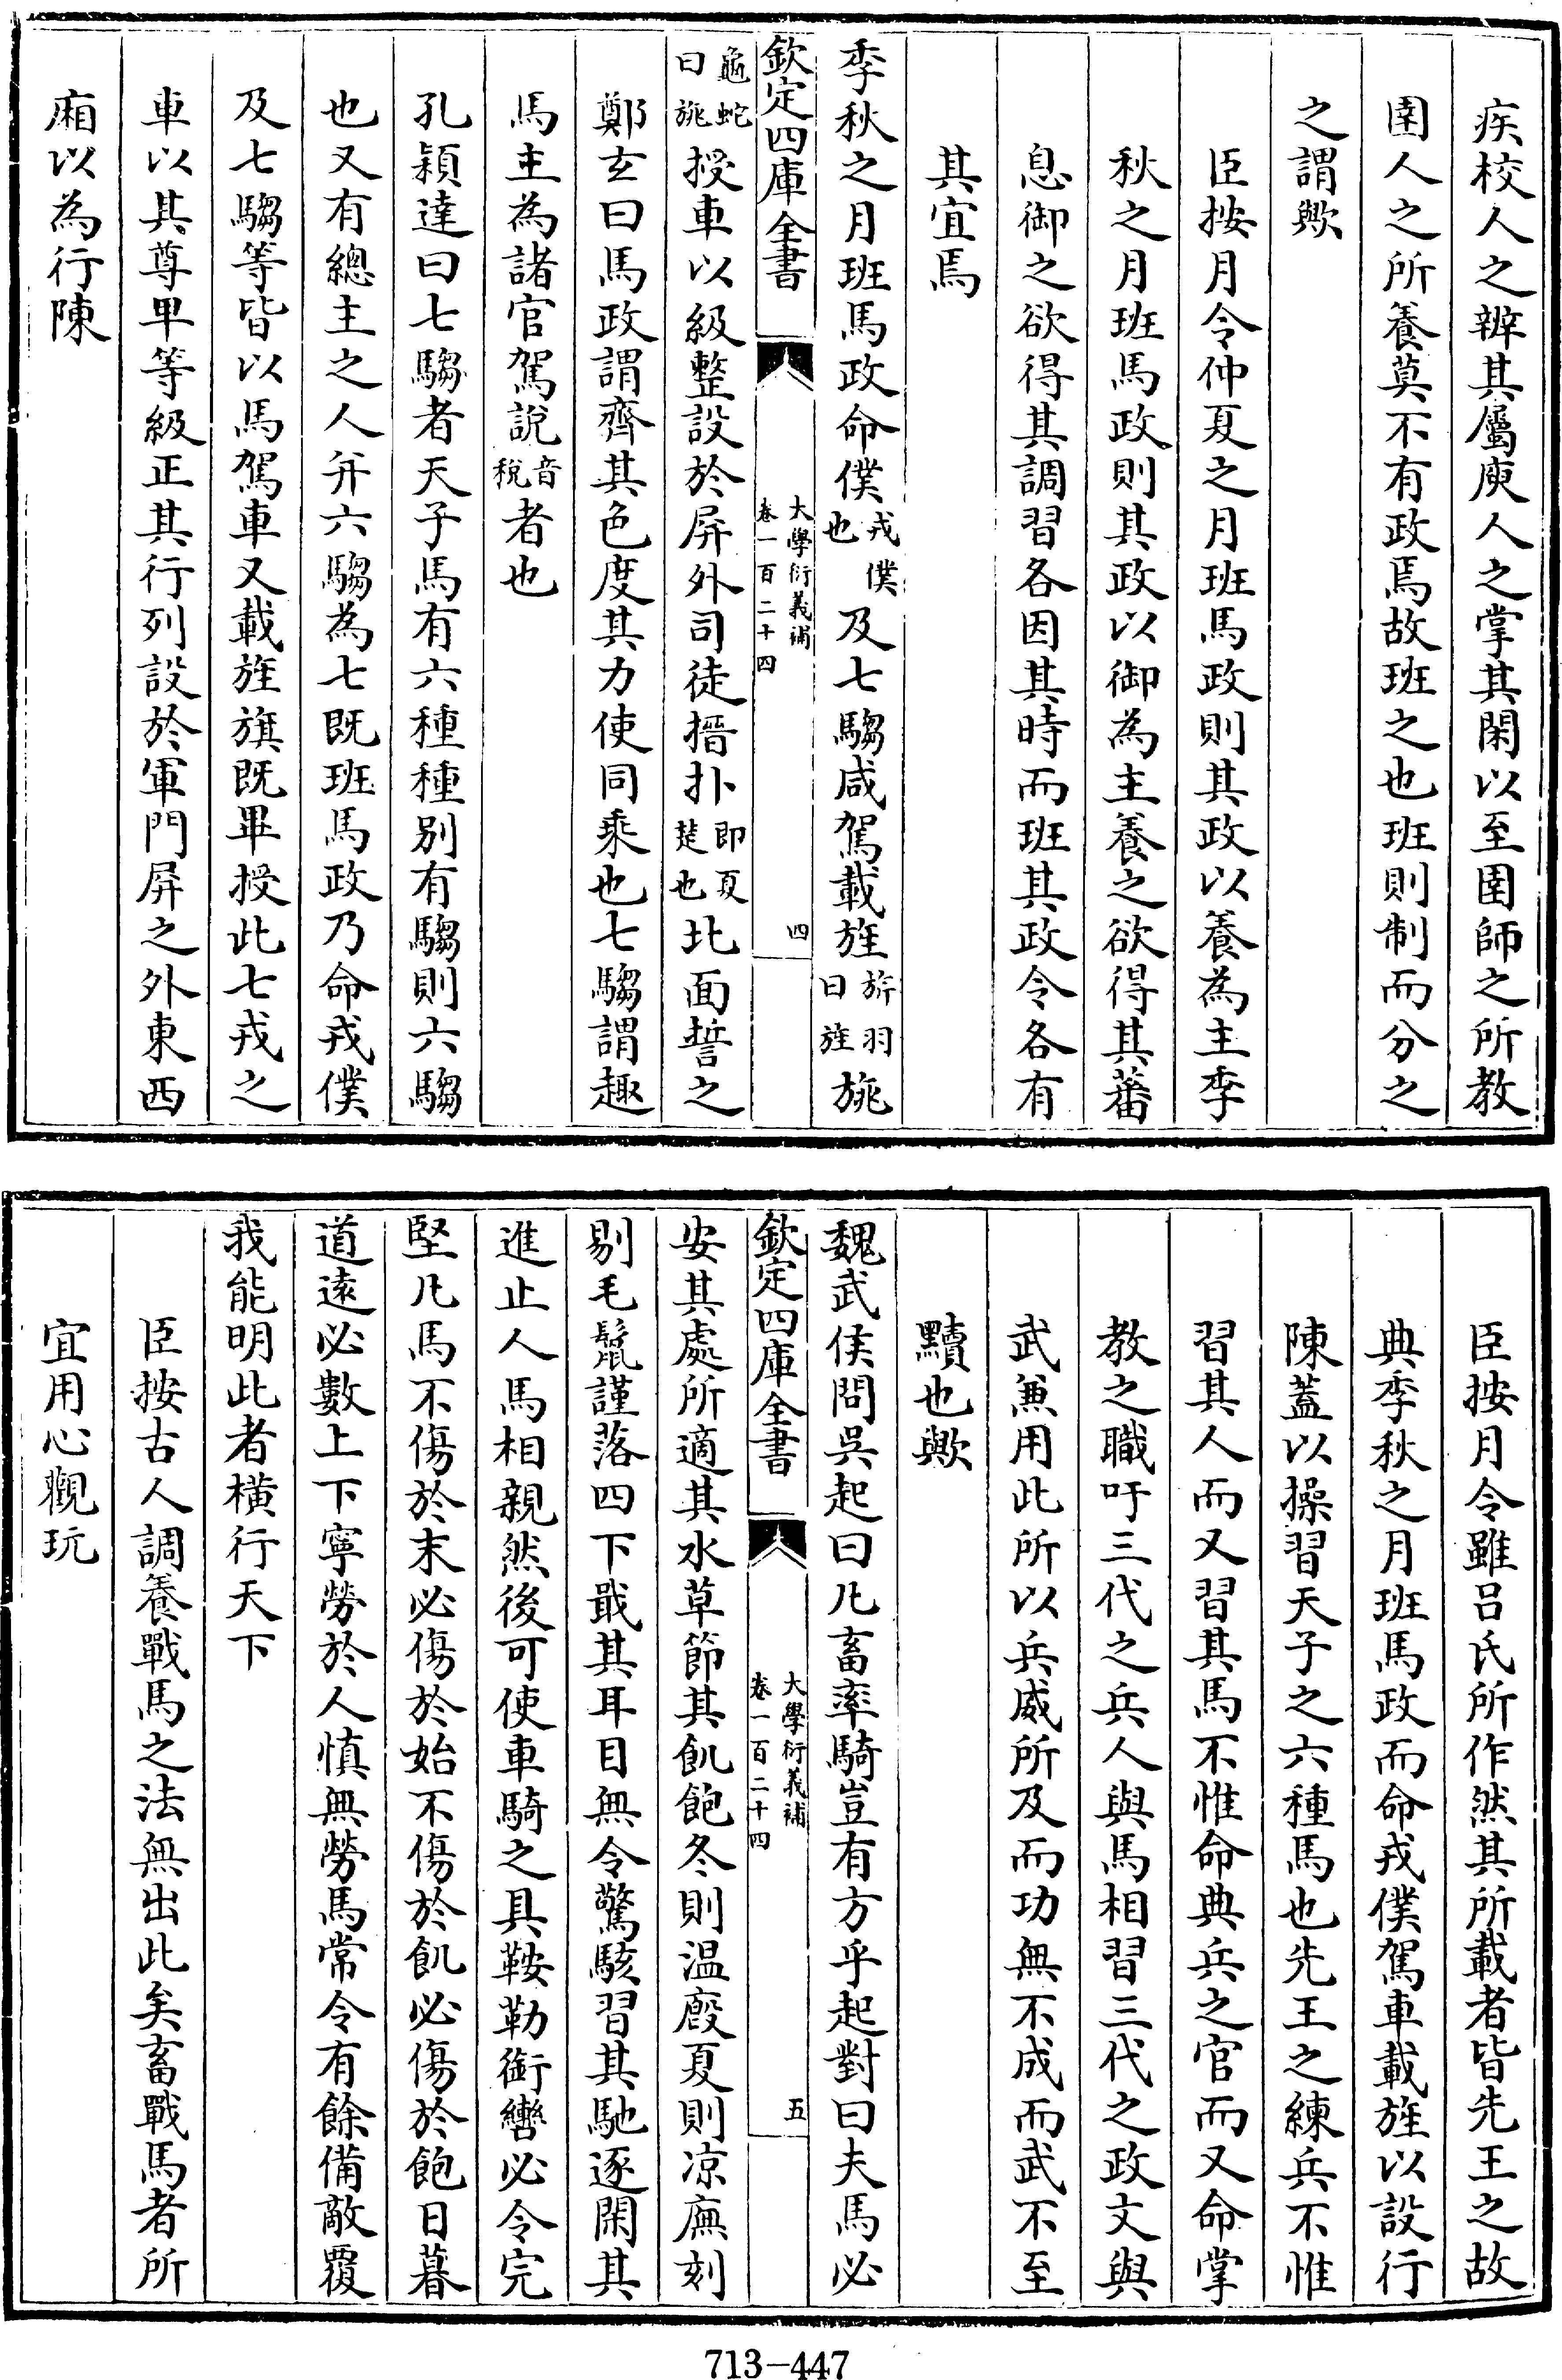 疾校人之辨其屬庾人之掌其閑以至圉師之所教
圉人之所養莫不有政焉故班之也班則制而分之
之謂歟
臣按月令仲夏之月班馬政則其政以養為主季
秋之月班馬政則其政以御為主養之欲得其蕃
息御之欲得其調習各因其時而班其政令各有
其宜焉
季秋之月班馬政命僕戎僕也及七騶咸駕載旌旂羽曰旌旐
欽定四庫全書
大學衍義補
卷一百二十四
四
龜蛇曰旐授車以級整設於屏外司徒搢扑即夏楚也北面誓之
鄭玄曰馬政謂齊其色度其力使同乘也七騶謂趣
馬主為諸官駕說音稅者也
孔穎達曰七騶者天子馬有六種種別有騶則六騶
也又有總主之人并六騶為七既班馬政乃命戎僕
及七騶等皆以馬駕車又載旌旗既畢授此七戎之
車以其尊卑等級正其行列設於軍門屏之外東西
廂以為行陳
臣按月令雖呂氏所作然其所載者皆先王之故
典季秋之月班馬政而命戎僕駕車載旌以設行
陳蓋以操習天子之六種馬也先王之練兵不惟
習其人而又習其馬不惟命典兵之官而又命掌
教之職吁三代之兵人與馬相習三代之政文與
武兼用此所以兵威所及而功無不成而武不至
黷也歟
魏武侯問吳起曰凡畜率騎豈有方乎起對曰夫馬必
欽定四庫全書
大學衍義補
卷一百二十四
五
安其處所適其水草節其飢飽冬則溫廄夏則凉廡刻
剔毛鬣謹落四下戢其耳目無令驚駭習其馳逐閑其
進止人馬相親然後可使車騎之具鞍勒銜轡必令完
堅凡馬不傷於末必傷於始不傷於飢必傷於飽日暮
道遠必數上下寧勞於人慎無勞馬常令有餘備敵覆
我能明此者橫行天下
臣按古人調養戰馬之法無出此矣畜戰馬者所
宜用心觀玩
713-447